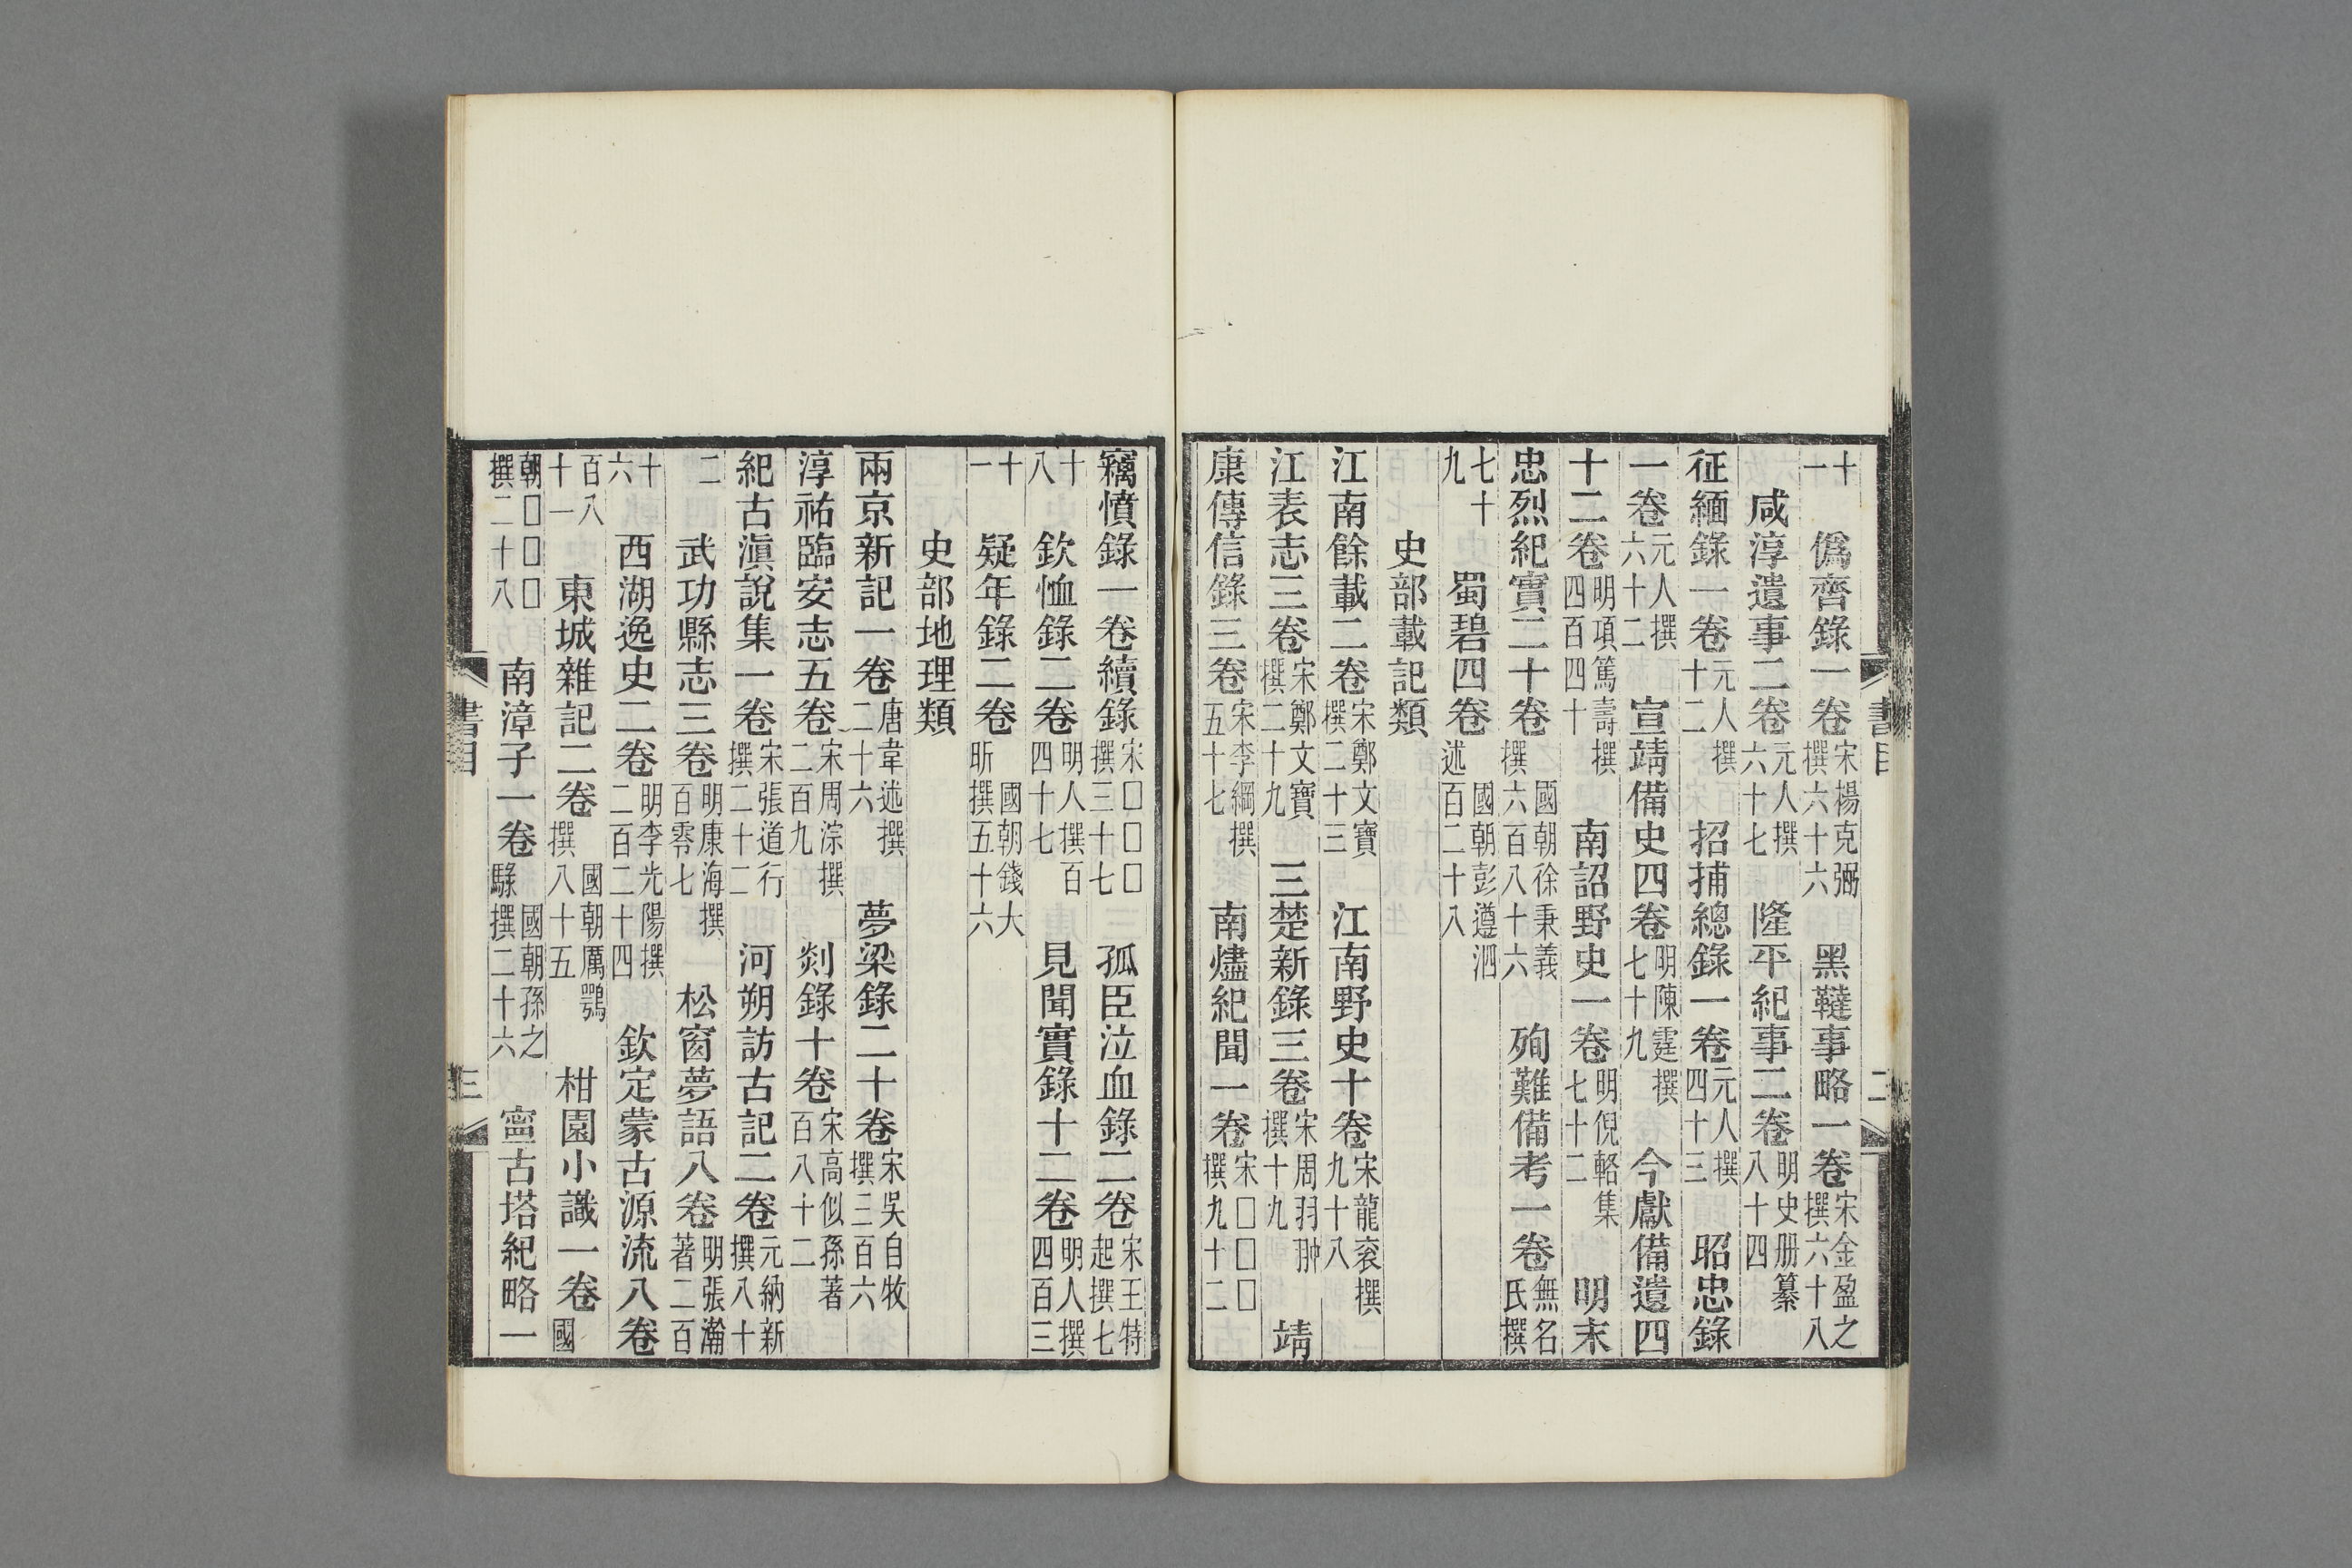 十一　僞齊錄一卷宋楊克弼撰六十六　黑韃事略一卷宋金盈之撰六十八
咸淳遺事二卷元人撰六十七　隆平紀事二卷明史册纂八十四
征緬錄一卷元人撰十二　招捕總錄一卷元人撰四十三　昭忠錄
一卷元人撰六十二　宣靖備史四卷明陳霆撰七十九　今獻備遺四
十二卷明項篤壽撰四百四十　南詔野史一卷明倪輅集七十二　明末
忠烈紀實二十卷國朝徐秉義撰六百八十六　殉難備考一卷無名氏撰
七十九　蜀碧四卷國朝彭遵泗述百二十八
史部載記類
江南餘載二卷宋鄭文寶撰二十三　江南野史十卷宋龍袞撰九十八
江表志三卷宋鄭文寶撰二十九　三楚新錄三卷宋周羽翀撰十九　靖
康傳信錄三卷宋李綱撰五十七　南燼紀聞一卷宋□□□撰九十二
竊憤錄一卷續錄宋□□□撰三十七　孤臣泣血錄二卷宋王特起撰七
十八　欽恤錄二卷明人撰百四十七　見聞實錄十二卷明人撰四百三
十一　疑年錄二卷國朝錢大昕撰五十六
史部地理類
兩京新記一卷唐韋述撰二十六　夢梁錄二十卷宋吳自牧撰三百六
淳祐臨安志五卷宋周淙撰二百九　剡錄十卷宋高似孫著百八十二
紀古滇說集一卷宋張道行撰二十二　河朔訪古記二卷元納新撰八十
二　武功縣志三卷明康海撰百零七　松窗夢語八卷明張瀚著二百
十六　西湖逸史二卷明李光陽撰二百二十四　欽定蒙古源流八卷
百八十一　東城雜記二卷國朝厲鶚撰八十五　柑園小識一卷國
朝□□□撰二十八　南漳子一卷國朝孫之騄撰二十六　寧古塔紀略一
書目　二
書目　三